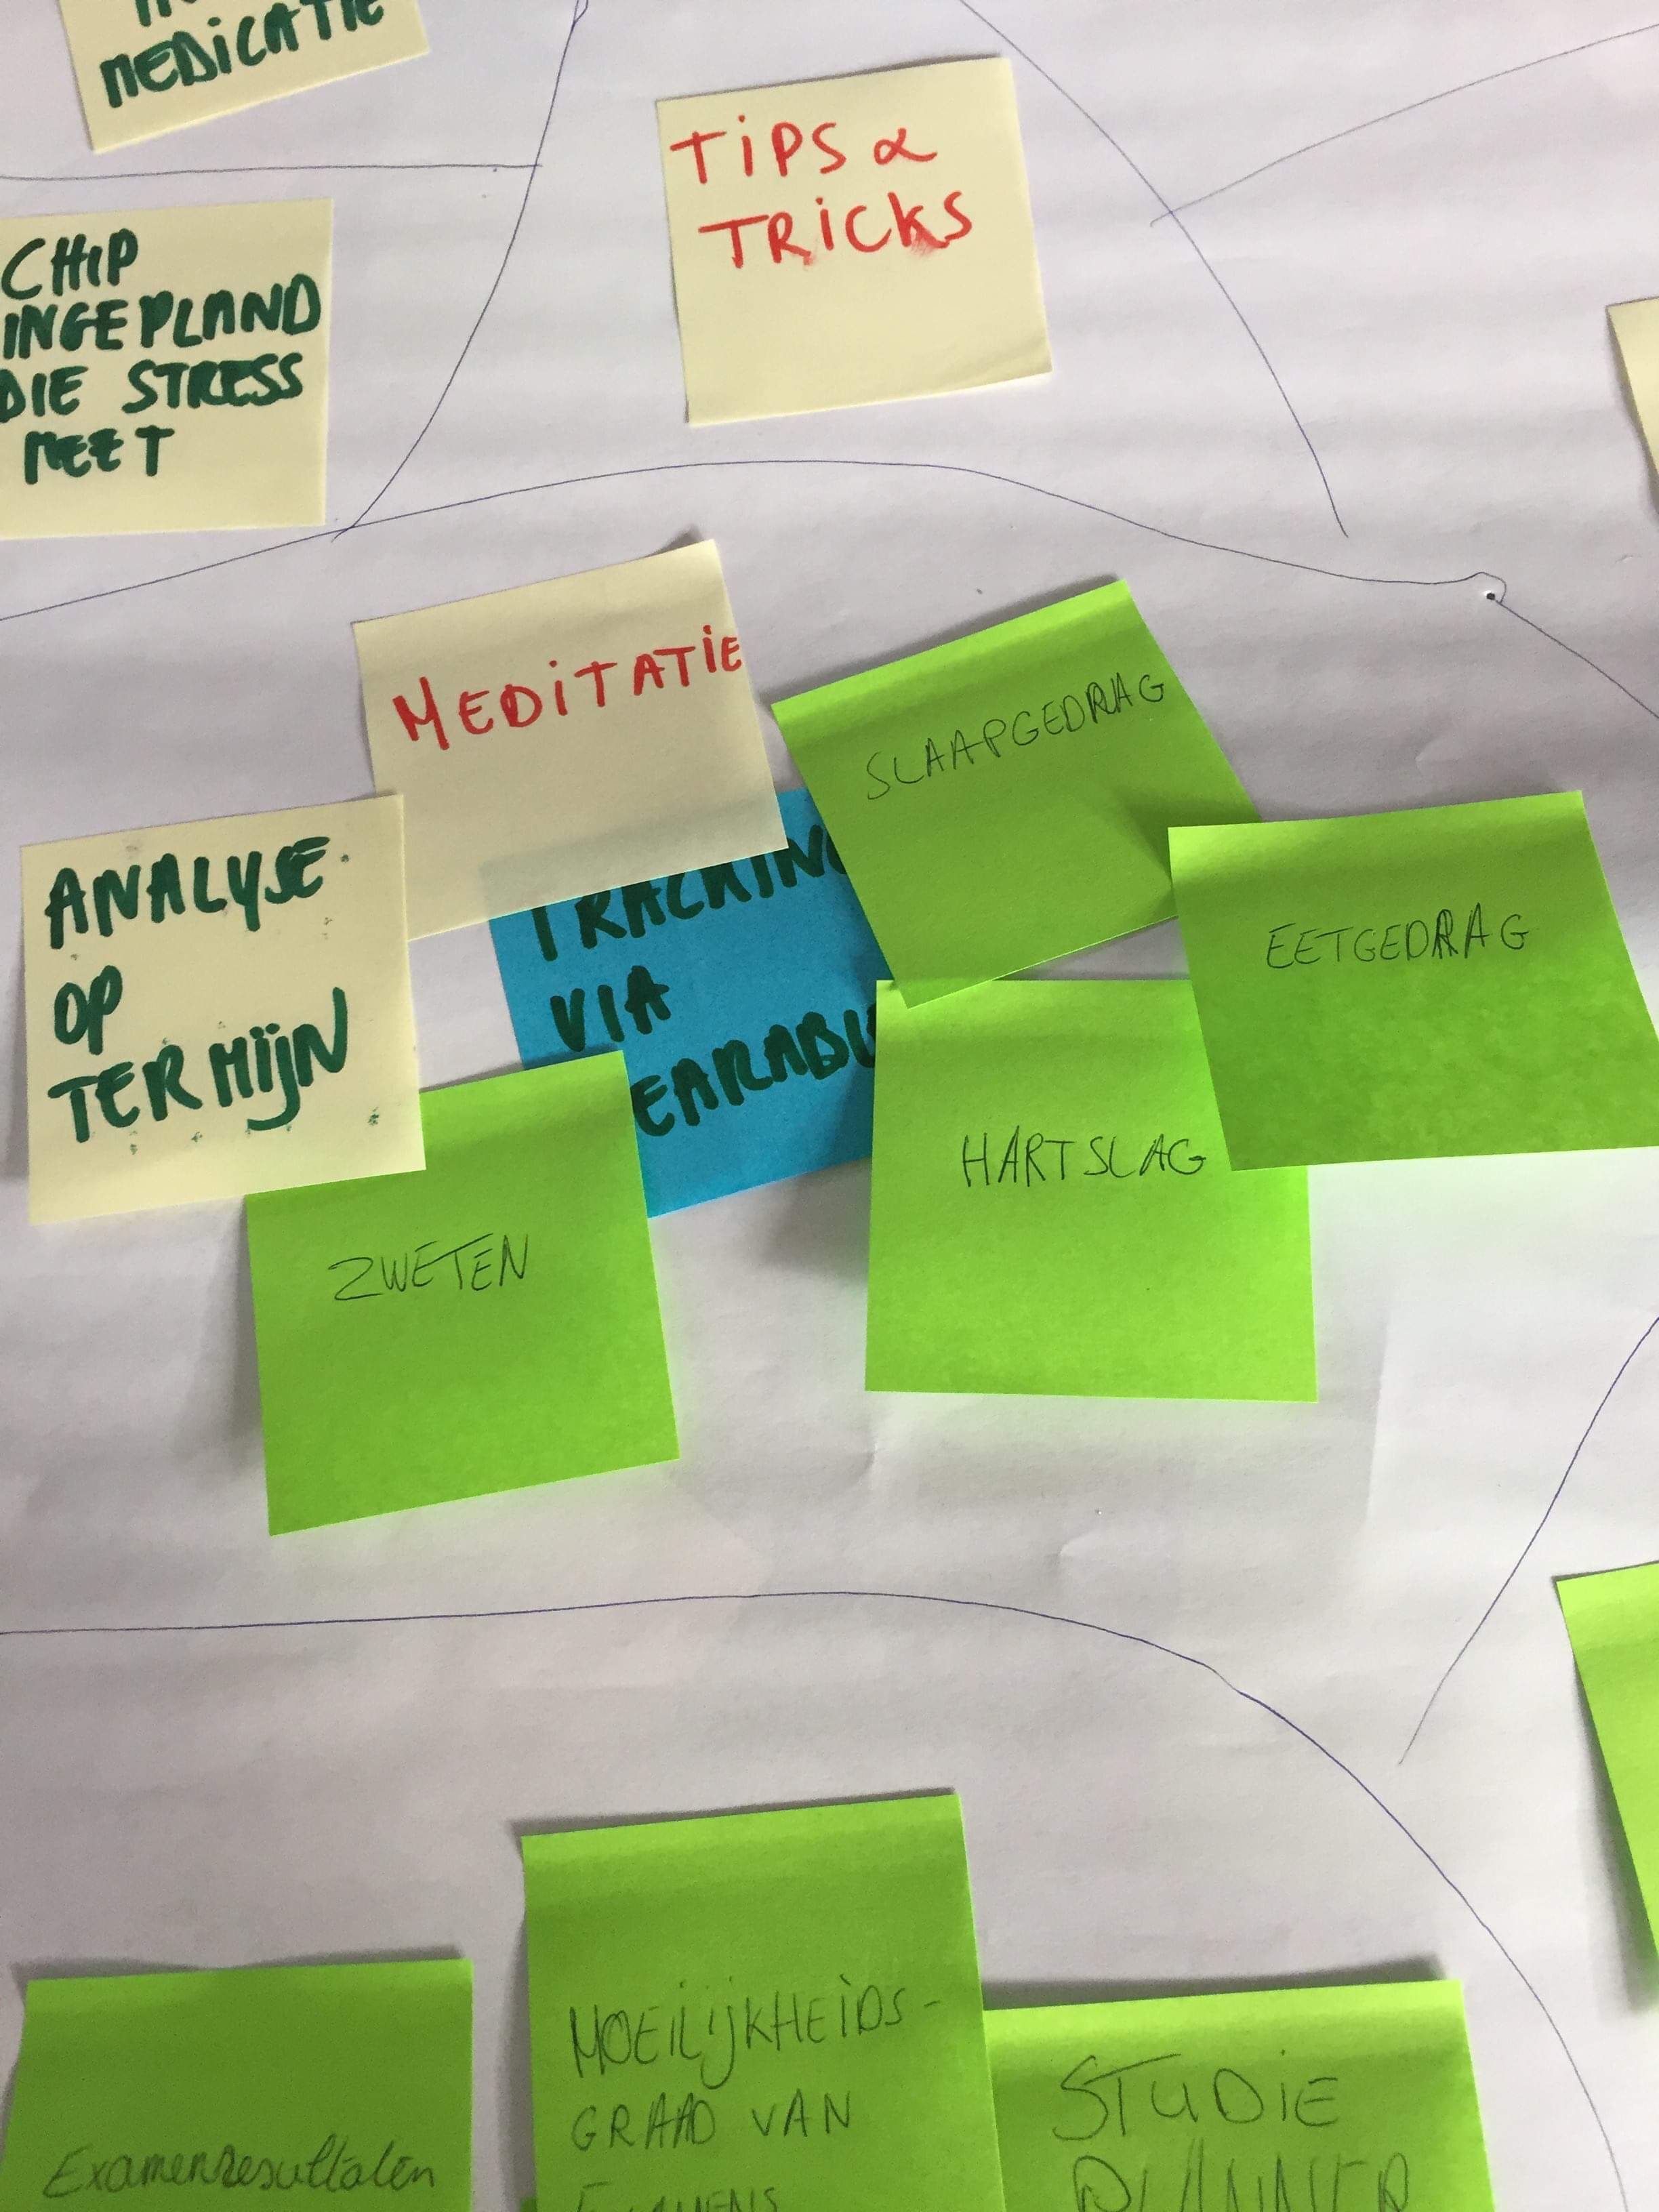 MEDICATIE
TIPS &
TRICKS
CHIP
INGEPLAND
DIE STRESS
MEET
MEDITATIE
SLAAPGEDRAG
ANALYSE
OP
TERMIJN
TRACKING
VIA
EARABL
EETGEDRAG
HARTSLAG
ZWETEN
MOEILIJKHEIDS-
GRAAD VAN
EXAMENS
STUDIE
PLANNER
Examenresultaten